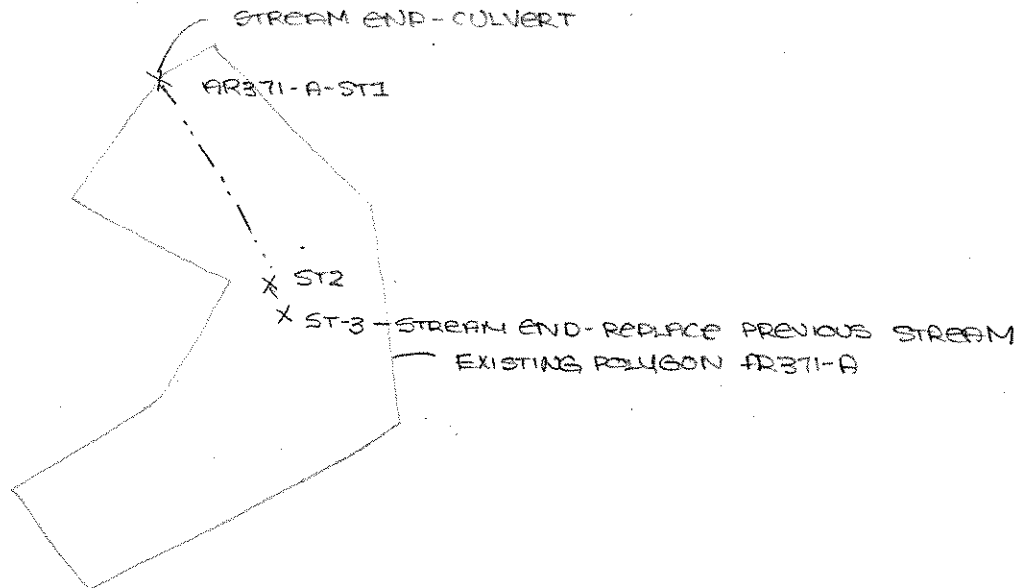 STREAM END-CULVERT
AR371-A-ST1
ST2
ST-3-STREAM END-REPLACE PREVIOUS STREAM
EXISTING POLYGON AR371-A